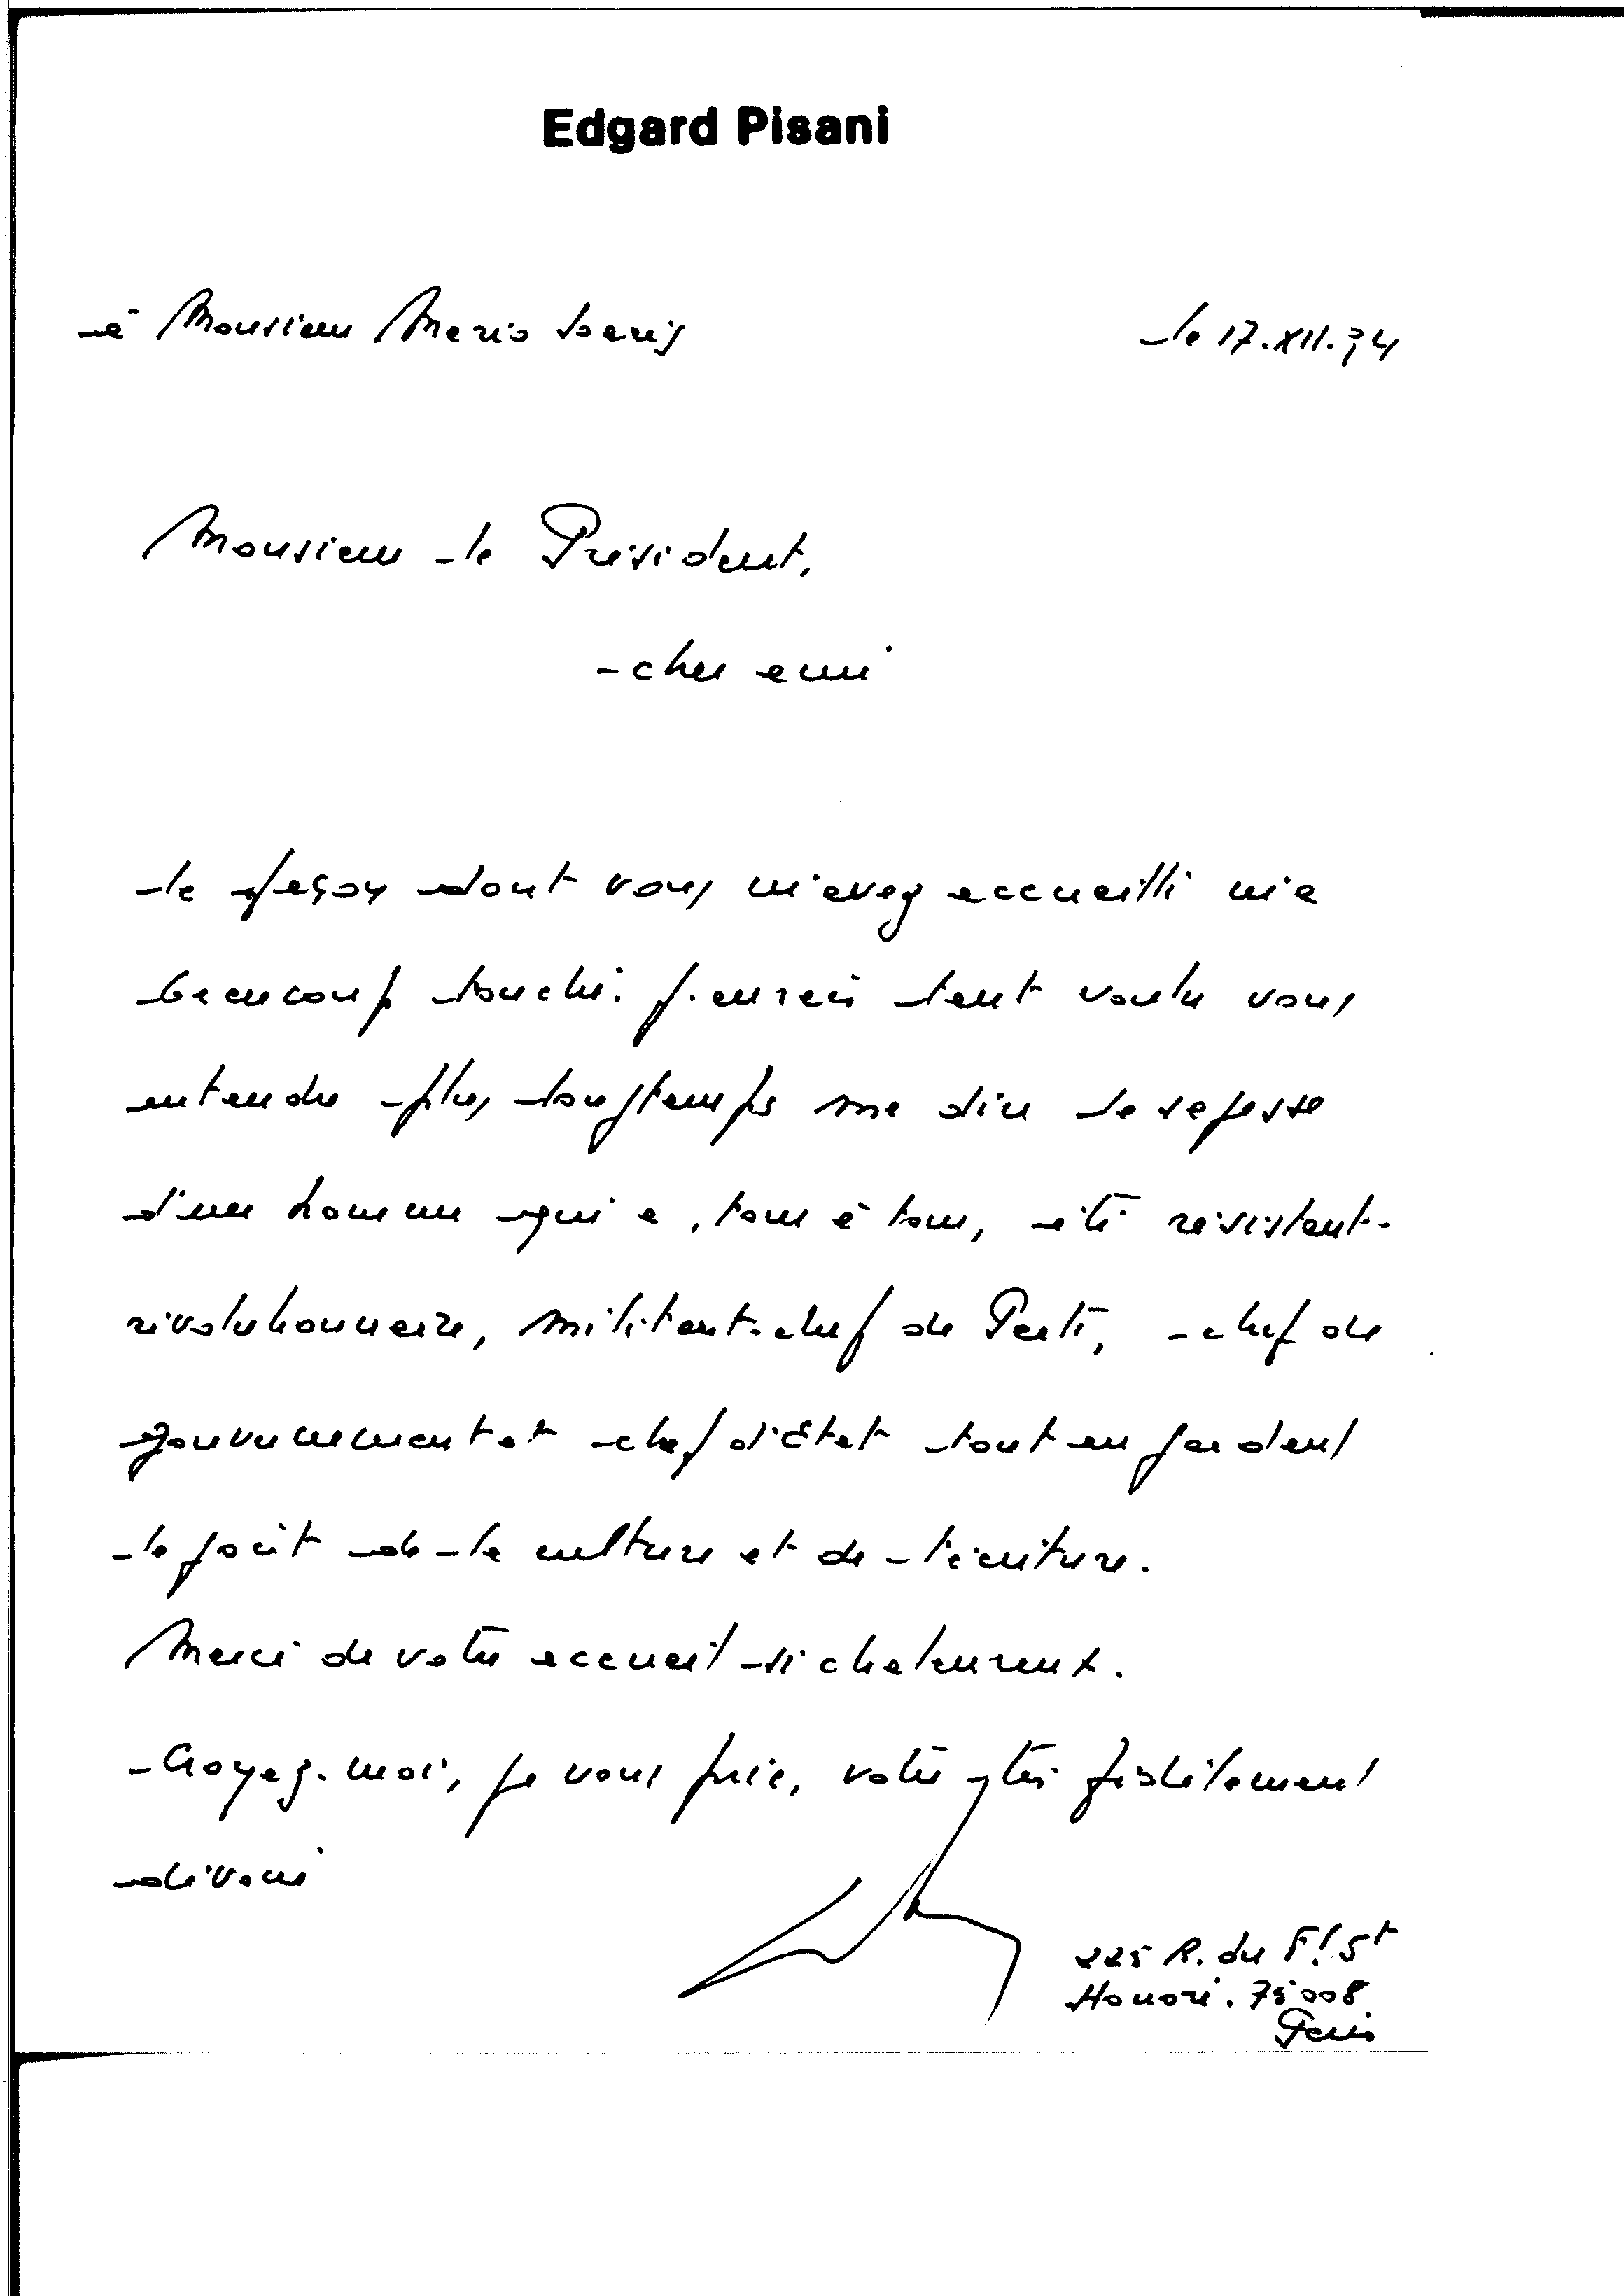 Edgard Pisani
à Monsieur Mario Soares
le 17.XII.94
Monsieur le Président,
cher ami
la façon dont vous m'avez accueilli m'a
beaucoup touché. J'aurais tant voulu vous
entendre plus longtemps me dire la sagesse
d'un homme qui a, tour à tour, été résistant-
révolutionnaire, militant-chef de Parti, chef de
gouvernement et chef d'Etat tout en gardant
le goût de la culture et de l'écriture.
Merci de votre accueil si chaleureux.
Croyez-moi, je vous prie, votre très fidèlement
dévoué
225 R. du F. St
Honoré. 75008
Paris